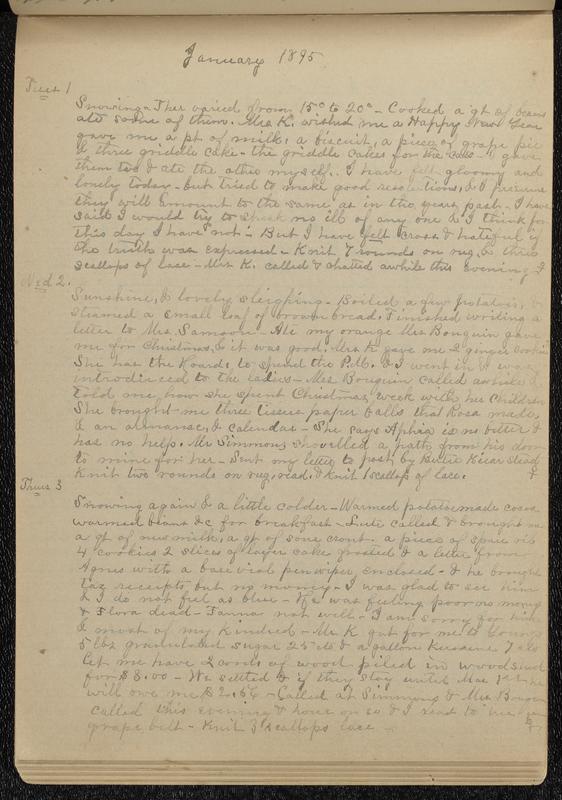 January 1895
Tues 1
Snowing - Ther varied from 15° to 20° - Cooked a qt of beans
ate some of them. Mrs K. wished me a Happy New Year
gave me a pt of milk, a biscuit, a piece of grape pie
& three griddle cake - the griddle cakes for the cats - I gave
them two & ate the other myself. I have felt gloomy and
lonely today - but tried to make good resolutions, & I presume
they will amount to the same as in the years past - I have
said I would try to speak no ill of any one & I think for
this day I have not - But I have felt cross & hateful if
the truth was expressed - Knit 7 rounds on rug & three
scallops of lace - Mrs K. called & chatted awhile this evening
Wed 2.
Sunshine, & lovely sleighing - Boiled a few potatoes, &
steamed a small loaf of brown bread. Finished writing a
letter to Mrs. Samson - Ate my orange Mrs Bouguin gave
me for Christmas, & it was good. Mrs K gave me 2 ginger cookies
She has the Hoards to spend the &. I went in & was
introduced to the ladies - Mrs Bouguin called awhile &
told me how she spent Christmas week with her Children
She brought me three tissue paper balls that Rosa made,
& an almanac, & calendar - She says Aphia is no better &
has no help. Mr Simmons shovelled a path from his door
to mine for her - Sent my letter to post, by Bertie &
Knit two rounds on rug, read, & knit 1 scallop of lace.
Thurs 3
Snowing again & a little colder - Warmed potatoe made cocoa
warmed beans &c for breakfast - called & brought me
a qt of new milk, a qt of sour crout. a piece of spare rib
4 cookies 2 slices of layer cake frosted & a letter from
Agnes with a base viol penwiper enclosed - & he brought
tax receipts but no money - I was glad to see him
& I do not feel as blue - He was feeling poor no money
& Flora dead - not well - I am sorry for him
& most of my kindred - Mr K got for me to Youngs
5 lbs granulated sugar 25 cts & a gallon kerosene
let me have 2 cords of wood piled in woodshed
for $8.00 - We settled & if they stay until Mar 1st he
will owe me - Called at Simmons & Mrs Bouguin
called this evening & hour or so & I read to her
grape belt - Knit scallops lace